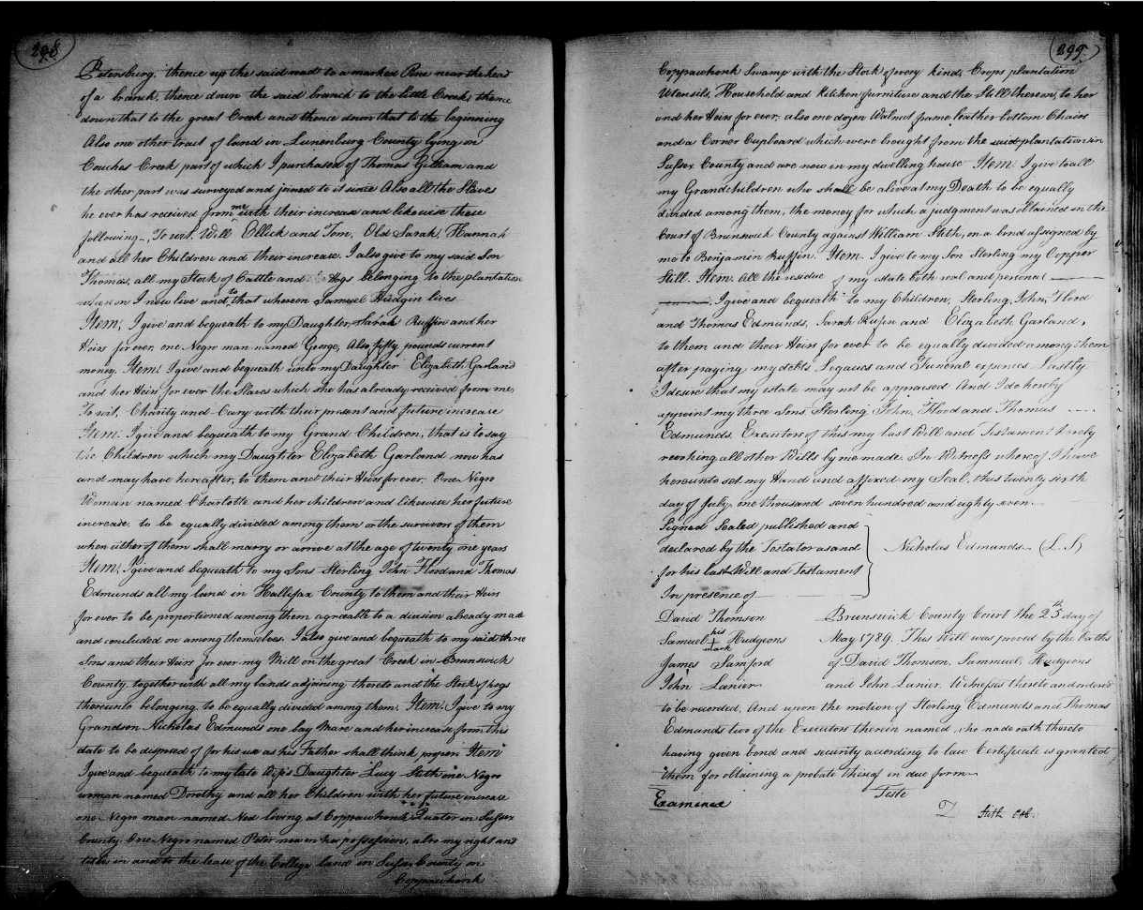 298
Petersburg, thence up the said road to a marked Pine near the head
of a branch, thence down the said branch to the little Creek, thence
down that to the great Creek and thence down that to the beginning
Also one other tract of land in Lunenburg County lying on
Couches Creek part of which I purchased of Thomas Gillam and
the other part was surveyed and joined to it since Also all the Slaves
he ever has received from me with their increase and likewise these
following, To wit, Will Ellick and Tom, Old Sarah, Hannah
and all her Children and their increase. I also give to my said Son
Thomas, all my Stock of Cattle and Hogs belonging to the plantation
whereon I now live and to that whereon Samuel Hudgin lives
Item, I give and bequeath to my Daughter Sarah Ruffin and her
Heirs for ever, one Negro man named George, Also fifty pounds current
money. Item. I give and bequeath unto my Daughter Elizabeth Garland
and her Heirs for ever the Slaves which she has already received from me,
To wit, Charity and Cary with their present and future increase
Item. I give and bequeath to my Grand Children, that is to say
the Children which my Daughter Elizabeth Garland now has
and may have hereafter, to them and their Heirs for ever, One Negro
Woman named Charlotte and her children and likewise her future
increase, to be equally divided among them or the survivors of them
when either of them shall marry or arrive at the age of twenty one years
Item, I give and bequeath to my Sons Sterling John Flood and Thomas
Edmunds all my land in Hallifax County to them and their Heirs
for ever to be proportioned among them agreable to a division already made
and concluded on among themselves. I also give and bequeath to my said three
Sons and their Heirs for ever my Mill on the great Creek in Brunswick
County, together with all my lands adjoining thereto and the Stock of hogs
thereunto belonging, to be equally divided among them. Item. I give to my
Grandson Nicholas Edmunds one bay Mare and her increase from this
date to be disposed of for his use as his Father shall think proper. Item
I give and bequeath to my late Wifes Daughter Lucy Stith one Negro
woman named Dorothy and all her Children with her future increase
one Negro man named Ned living at Coppawhonk Quater in Sussex
County. One Negro named Peter now in her possession, also my right and
title in and to the lease of the College land in Sussex County on
Coppawhonk
299
Coppawhonk Swamp with the Stock of every kind, Crops plantation
Utensils, Household and Kitchen furniture and the Still thereon, to her
and her Heirs for ever, also one dozen Walnut frame leather bottom Chairs
and a Corner Cupboard which were bought from the said plantation in
Sussex County and are now in my dwelling house Item. I give to all
my Grandchildren who shall be alive at my Death to be equally
divided among them, the money for which a judgment was obtained in the
Court of Brunswick County against William Stith, on a bond assigned by
me to Benjamin Ruffin. Item. I give to my Son Sterling my Copper
Still. Item. All the residue of my estate both real and personal
I give and bequeath to my Children, Sterling, John, Flood
and Thomas Edmunds, Sarah Rufin and Elizabeth Garland,
to them and their Heirs for ever to be equally divided among them
after paying my debts, Legacies and Funeral expences Lastly
I desire that my estate may not be appraised And I do hereby
appoint my three Sons Sterling John, Flood and Thomas
Edmunds, Executors of this my last Will and Testament hereby
revoking all other Wills by me made. In Witness whereof I have
hereunto set my Hand and affixed my Seal, this twenty sixth
day of July, one thousand seven hundred and eighty seven.
Signed Sealed published and
declared by the Testator as and
for his last Will and Testament
In presence of
Nicholas Edmunds (L.S)
David Thomson
Samuel his + mark Hudgeons
James Samford
John Lanier
Brunswick County Court the 25th day of
May 1789. This Will was proved by the Oaths
of David Thomson, Sammuel Hudgeons
and John Lanier, Witnesses thereto and ordered
to be recorded, And upon the motion of Sterling Edmunds and Thomas
Edmunds two of the Executors therein named, who made oath thereto
having given bond and security according to law Certificate is granted
them for obtaining a probate thereof in due form
Teste
Examined